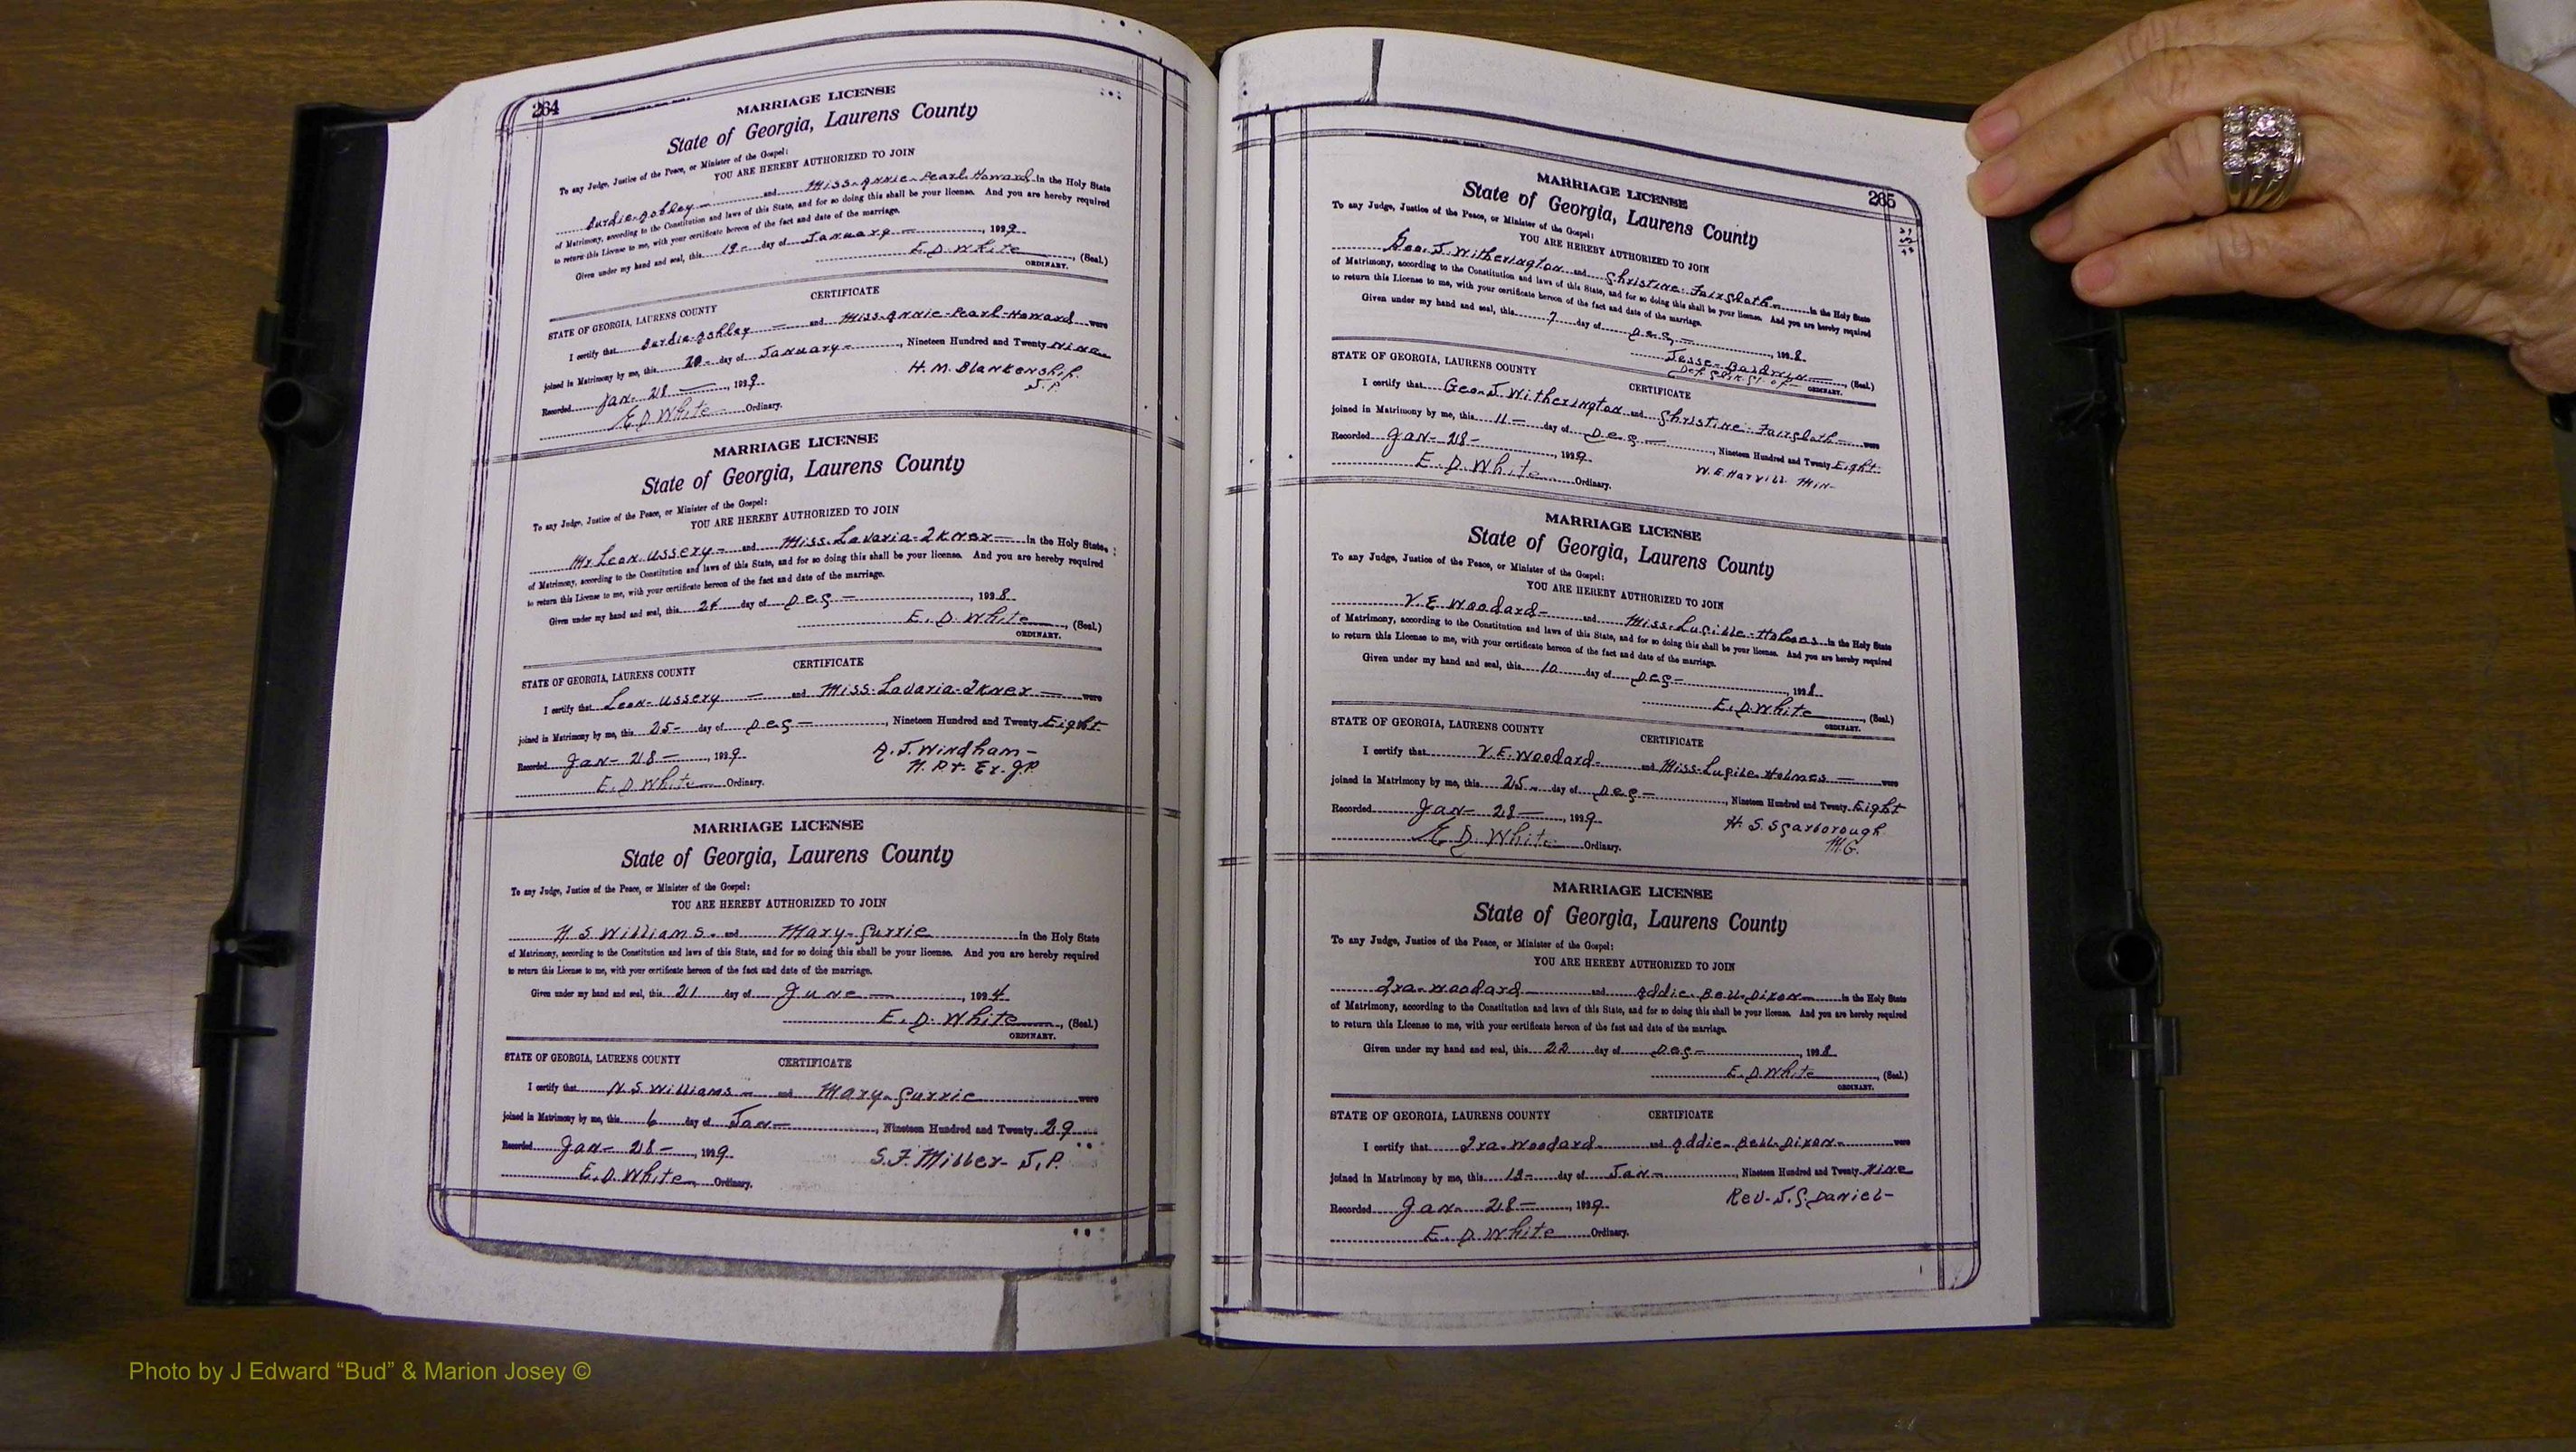 264
MARRIAGE LICENSE
State of Georgia, Laurens County
To any Judge, Justice of the Peace, or Minister of the Gospel:
YOU ARE HEREBY AUTHORIZED TO JOIN
Burdie Ashley and Miss Annie Pearl Howard in the Holy State
of Matrimony, according to the Constitution and laws of this State, and for so doing this shall be your license. And you are hereby required
to return this License to me, with your certificate hereon of the fact and date of the marriage.
Given under my hand and seal, this 19 day of January, 1929
E. D. White, (Seal.)
ORDINARY.
CERTIFICATE
STATE OF GEORGIA, LAURENS COUNTY
I certify that Burdie Ashley and Miss Annie Pearl Howard were
joined in Matrimony by me, this 20 day of January, Nineteen Hundred and Twenty Nine
H. M. Blankenship
Recorded Jan- 28, 1929
J. P.
E D White Ordinary.
MARRIAGE LICENSE
State of Georgia, Laurens County
To any Judge, Justice of the Peace, or Minister of the Gospel:
YOU ARE HEREBY AUTHORIZED TO JOIN
Mr Leon Ussery and Miss Lavaria in the Holy State,
of Matrimony, according to the Constitution and laws of this State, and for so doing this shall be your license. And you are hereby required
to return this License to me, with your certificate hereon of the fact and date of the marriage.
Given under my hand and seal, this day of Dec, 1928
E. D. White, (Seal.)
ORDINARY.
CERTIFICATE
STATE OF GEORGIA, LAURENS COUNTY
I certify that Leon Ussery and Miss Lavaria were
joined in Matrimony by me, this 25 day of Dec, Nineteen Hundred and Twenty Eight
A. J. Windham
Recorded Jan- 28, 1929
N. P. & Ex. J.P.
E. D White Ordinary.
MARRIAGE LICENSE
State of Georgia, Laurens County
To any Judge, Justice of the Peace, or Minister of the Gospel:
YOU ARE HEREBY AUTHORIZED TO JOIN
N S Williams and Mary Currie in the Holy State
of Matrimony, according to the Constitution and laws of this State, and for so doing this shall be your license. And you are hereby required
to return this License to me, with your certificate hereon of the fact and date of the marriage.
Given under my hand and seal, this 21 day of June, 1924
E. D. White, (Seal.)
ORDINARY.
STATE OF GEORGIA, LAURENS COUNTY CERTIFICATE
I certify that N. S Williams and Mary Currie were
joined in Matrimony by me, this 6 day of Jan, Nineteen Hundred and Twenty 29
Recorded Jan- 28-, 1929 S. F. Miller- J. P.
E. D. White, Ordinary.
265
MARRIAGE LICENSE
State of Georgia, Laurens County
To any Judge, Justice of the Peace, or Minister of the Gospel:
YOU ARE HEREBY AUTHORIZED TO JOIN
Geo. J. Witherington and Christine Faircloth in the Holy State
of Matrimony, according to the Constitution and laws of this State, and for so doing this shall be your license. And you are hereby required
to return this License to me, with your certificate hereon of the fact and date of the marriage.
Given under my hand and seal, this 7 day of Dec, 1928
Jesse Baldwin (Seal.)
ORDINARY.
STATE OF GEORGIA, LAURENS COUNTY
CERTIFICATE
I certify that Geo. J. Witherington and Christine Faircloth were
joined in Matrimony by me, this 11 day of Dec, Nineteen Hundred and Twenty Eight
Recorded Jan- 28-, 1929
W. E. Harvill Min-
E. D. White Ordinary.
MARRIAGE LICENSE
State of Georgia, Laurens County
To any Judge, Justice of the Peace, or Minister of the Gospel:
YOU ARE HEREBY AUTHORIZED TO JOIN
V. E Woodard and Miss Lucille Holmes in the Holy State
of Matrimony, according to the Constitution and laws of this State, and for so doing this shall be your license. And you are hereby required
to return this License to me, with your certificate hereon of the fact and date of the marriage.
Given under my hand and seal, this 10 day of Dec, 1928
E. D. White, (Seal.)
ORDINARY.
STATE OF GEORGIA, LAURENS COUNTY
CERTIFICATE
I certify that V. E. Woodard and Miss Lucile Holmes were
joined in Matrimony by me, this 25 day of Dec, Nineteen Hundred and Twenty Eight
Recorded Jan- 28-, 1929
H. S. Scarborough
M.G.
E D. White Ordinary.
MARRIAGE LICENSE
State of Georgia, Laurens County
To any Judge, Justice of the Peace, or Minister of the Gospel:
YOU ARE HEREBY AUTHORIZED TO JOIN
Ira Woodard and Addie Bell Dixon in the Holy State
of Matrimony, according to the Constitution and laws of this State, and for so doing this shall be your license. And you are hereby required
to return this License to me, with your certificate hereon of the fact and date of the marriage.
Given under my hand and seal, this 22 day of Dec, 1928
E. D White, (Seal.)
ORDINARY.
STATE OF GEORGIA, LAURENS COUNTY CERTIFICATE
I certify that Ira Woodard and Addie Bell Dixon were
joined in Matrimony by me, this day of Jan, Nineteen Hundred and Twenty Nine
Recorded Jan. 28-, 1929 Rev. J. C. Daniel-
E. D. White Ordinary.
Photo by J Edward “Bud” & Marion Josey ©